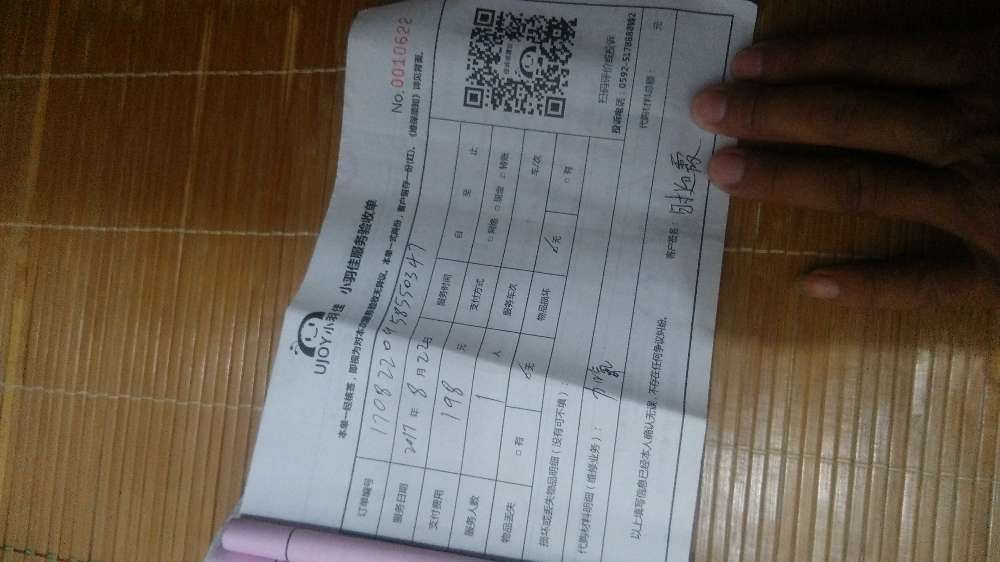 No. 0010622
UJOY小羽佳 小羽佳服务验收单
本单一经核签，即视为对本次服务验收无异议。本单一式两份，客户留存一份(红)。《维保须知》详见背面。
订单编号 17082209585550347
服务日期 2017 年 8 月 22 日 服务时间 自 至 止
支付费用 198 元 支付方式 □ 网络 □ 现金 □ 转账
服务人数 1 人 服务车次 车/次
物品丢失 □ 有 无 物品损坏 无 □ 有
损坏或丢失物品明细（没有可不填）：
代购材料明细（维修业务）：
代购材料总额： 元
以上填写信息已经本人确认无误，不存在任何争议纠纷。
客户签名：
扫码评价或投诉
投诉电话：0592-5178888转2